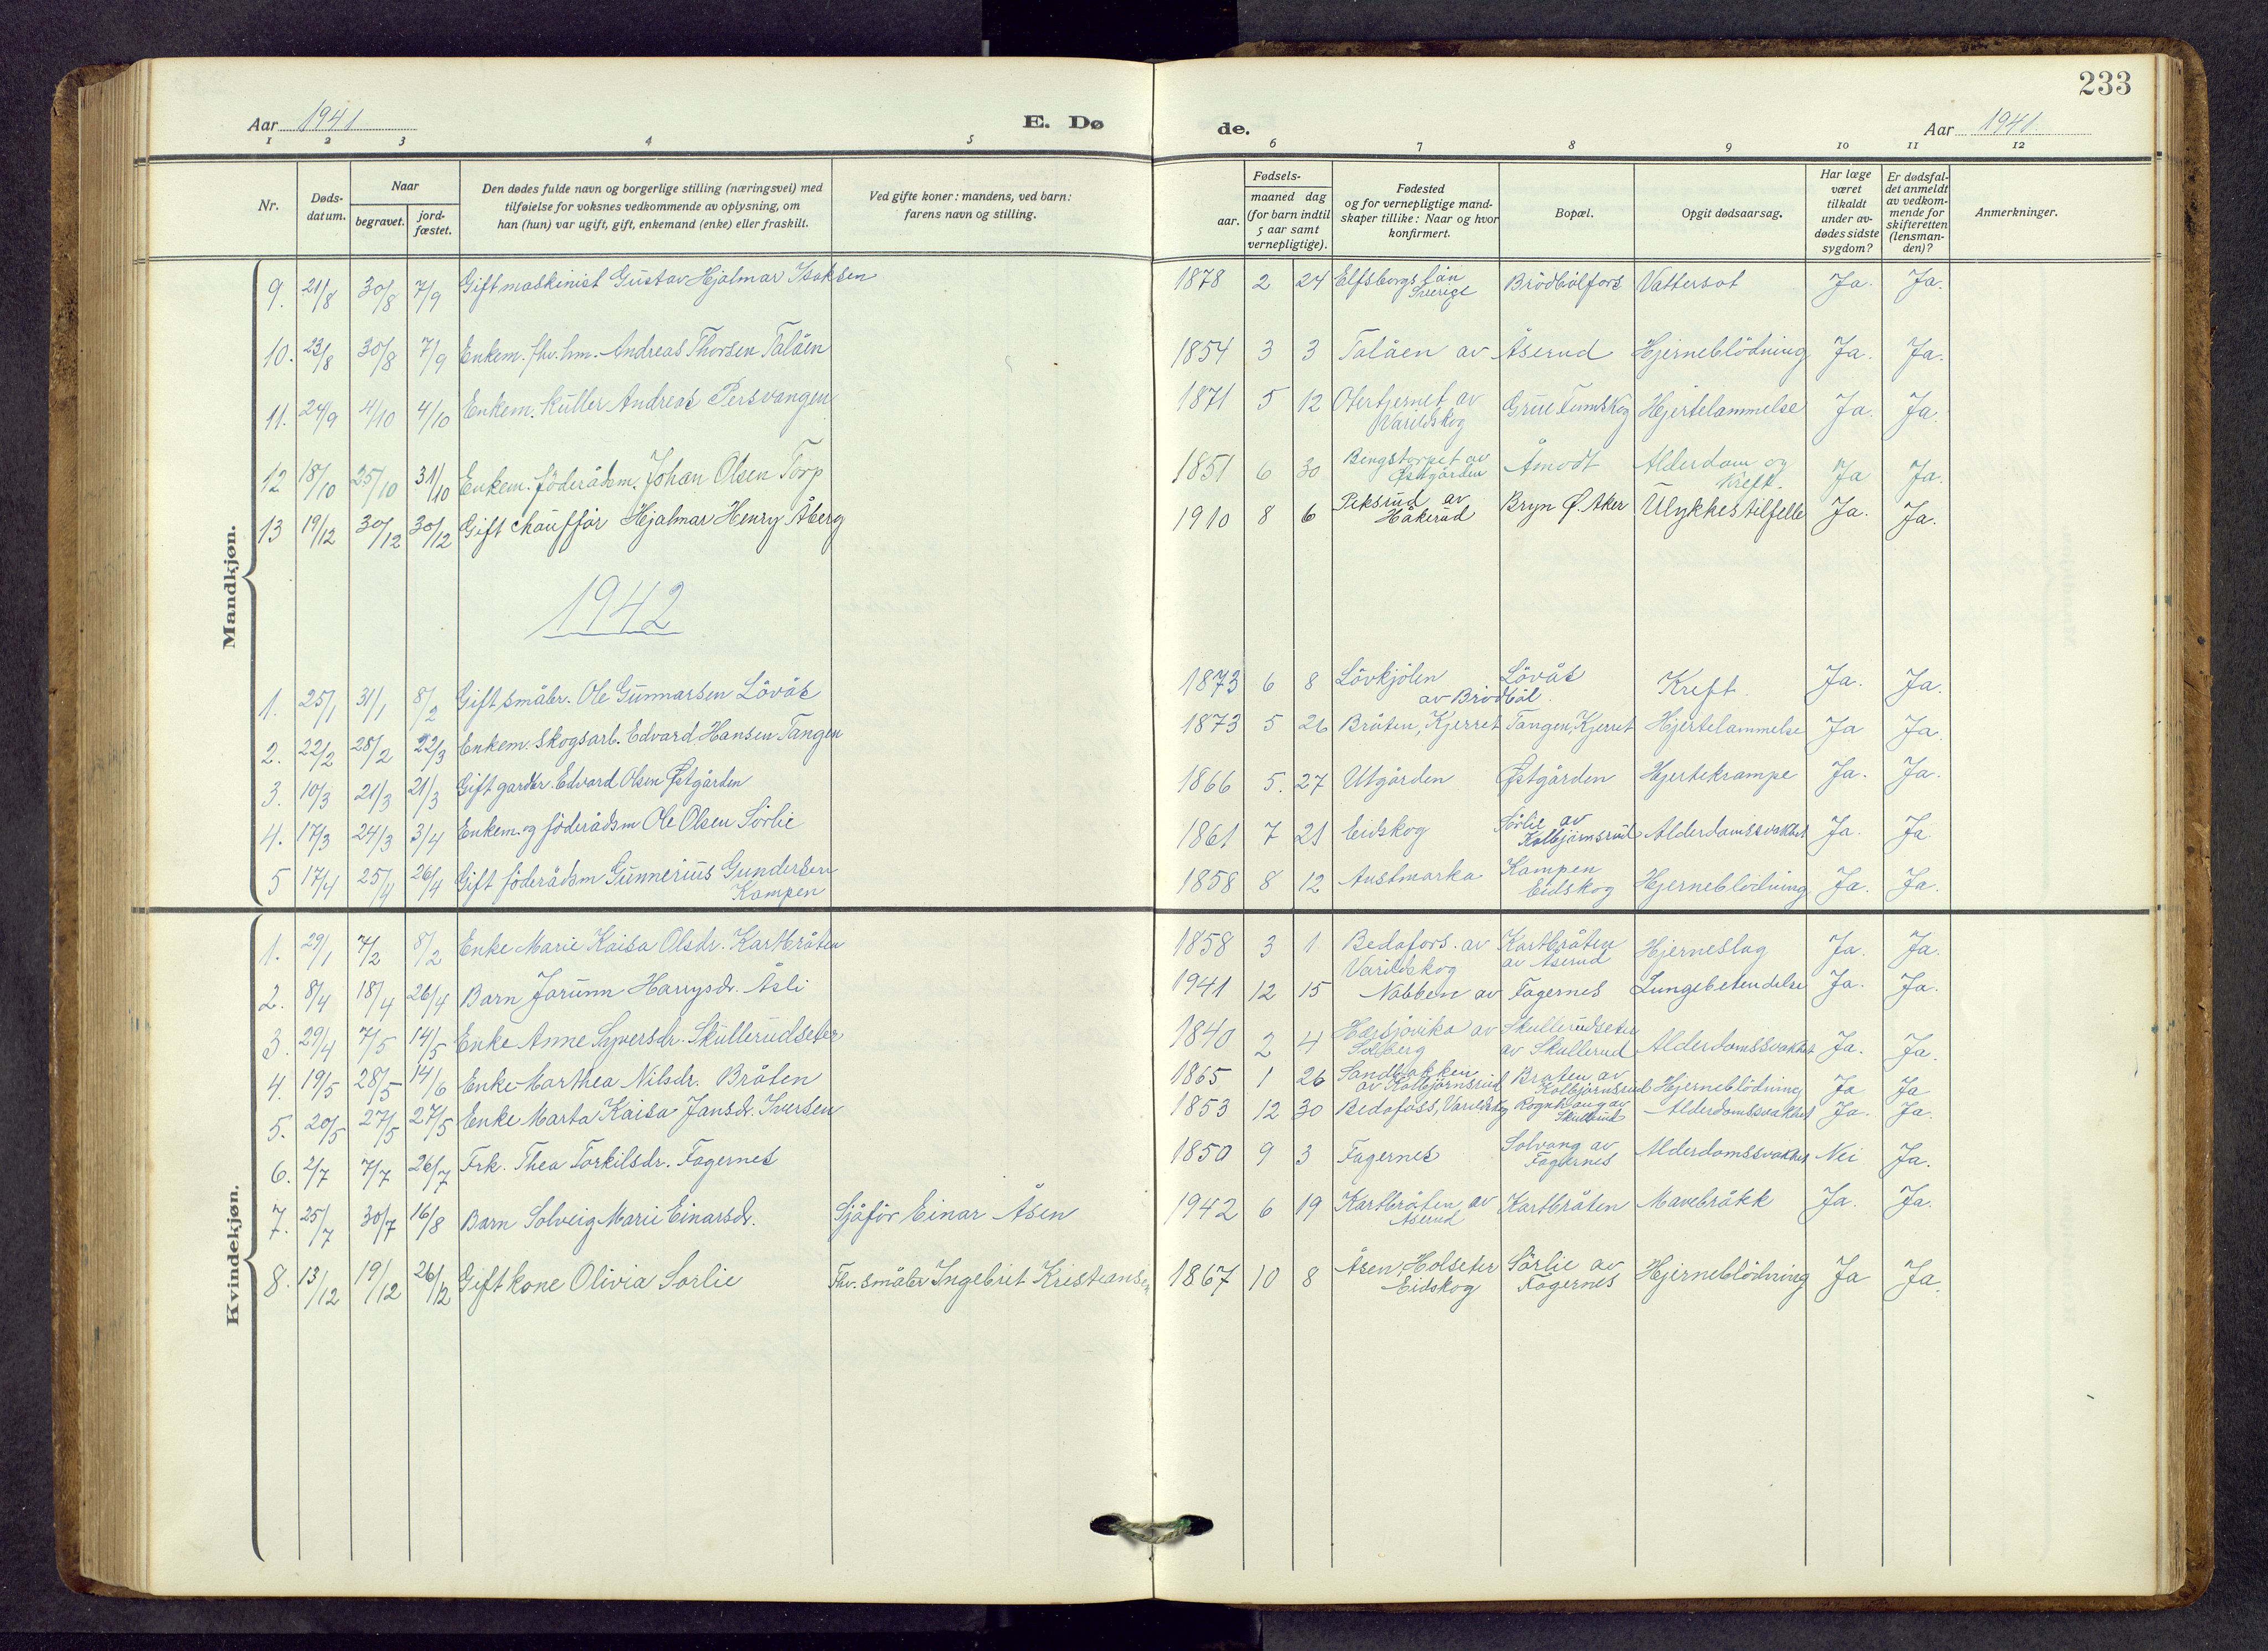 233
Aar 1941
E. Dø
de.
Aar 1941
1 2 3 4 5 6 7 8 9 10 11 12
Nr.
Døds-
datum.
Naar
begravet.
jord-
fæstet.
Den dødes fulde navn og borgerlige stilling (næringsvei) med
tilføielse for voksnes vedkommende av oplysning, om
han (hun) var ugift, gift, enkemand (enke) eller fraskilt.
Ved gifte koner: mandens, ved barn:
farens navn og stilling.
Fødsels-
aar.
maaned dag
(for barn indtil
5 aar samt
vernepligtige).
Fødested
og for vernepligtige mand-
skaper tillike: Naar og hvor
konfirmert.
Bopæl.
Opgit dødsaarsag.
Har læge
været
tilkaldt
under av-
dødes sidste
sygdom?
Er dødsfal-
det anmeldt
av vedkom-
mende for
skifteretten
(lensman-
den)?
Anmerkninger.
Mandkjøn.
9. 21/8 30/8 7/9 Gift maskinist Gustav Hjalmar Isaksen 1878 2 24 Elfsborgs län Sverige Brödbölfors Vattersot Ja. Ja.
10. 23/8 30/8 7/9 Enkem. fhv. hm. Andreas Thorsen Talåen 1854 3 3 Talåen av Åserud Hjerneblödning Ja. Ja.
11. 24/9 4/10 4/10 Enkem. Kuller Andreas Persvangen 1871 5 12 Otertjernet av Varildskog Grue Finnskog Hjertelammelse Ja. Ja.
12 18/10 25/10 31/10 Enkem. föderådsm. Johan Olsen Torp 1851 6 30 Bingstorpet av Østgården Åmodt Alderdom og Kreft. Ja Ja.
13 19/12 30/12 30/12 Gift chauffør Hjalmar Henry Åberg 1910 8 6 Peksrud av Håkerud Bryn Ø. Aker Ulykkestilfelle Ja. Ja.
1942
1. 25/1 31/1 8/2 Gift småbr. Ole Gunnarsen Lövås 1873 6 8 Lövkjölen av Brödböl Lövås Kreft. Ja. Ja.
2. 22/2 28/2 22/3 Enkem. Skogsarb. Edvard Hansen Tangen 1873 5 26 Bråten, Kjerret Tangen, Kjerret Hjertelammelse Ja Ja.
3. 10/3 21/3 21/3 Gift gardbr. Edvard Olsen Østgården 1866 5. 27 Utgården Østgården Hjertekrampe Ja. Ja.
4. 17/3 24/3 3/4 Enkem. og föderådsm Ole Olsen Sörlie 1861 7 21 Eidskog Sörlie av Kolbjörnsrud Alderdomssvakhet Ja. Ja
5 17/4 25/4 26/4 Gift föderådsm Gunnerius Gundersen Kampen 1858 8 12 Austmarka Kampen Eidskog Hjerneblödning Ja. Ja.
Kvindekjøn.
1. 29/1 7/2 8/2 Enke Marie Kaisa Olsdr. Kartbråten 1858 3 1 Bedafors. av Varildskog Kartbråten av Åserud Hjerneslag Ja. Ja.
2. 8/4 18/4 26/4 Barn Jorunn Harrysdr. Åsli 1941 12 15 Nabben av Fagernes Lungebetendelse Ja. Ja.
3. 29/4 7/5 14/5 Enke Anne Syversdr. Skullerudseter 1840 2 4 Hærsjövika av Solberg Skullerudseter av Skullerud Alderdomssvakhet Ja. Ja.
4. 19/5 28/5 14/6 Enke Marthea Nilsdr. Bråten 1865 1 26 Sandbakken av Kolbjörnsrud Braten av Kolbjörnsrud Hjerneblödning Ja Ja
5. 20/5 27/5 27/5 Enke Marta Kaisa Jansdr. Iversen 1853 12 30 Bedafoss, Varildskog Rognhaug av Skullerud Alderdomssvakhet Ja. Ja.
6. 2/7 7/7 26/7 Frk. Thea Torkilsdr. Fagernes 1850 9 3 Fagernes Solvang av Fagernes Alderdomssvakhet Nei Ja.
7. 25/7 30/7 16/8 Barn Solveig Marie Einarsdr. Sjåför Einar Åsen 1942 6 19 Kartbråten av Åserud Kartbråten Mavebråkk Ja. Ja.
8. 13/12 19/12 26/12 Gift kone Olivia Sorlie Fhv. småbr Ingebret Kristiansen 1867 10 8 Åsen, Holseter Eidskog Sörlie av Fagernes Hjerneblödning Ja Ja.